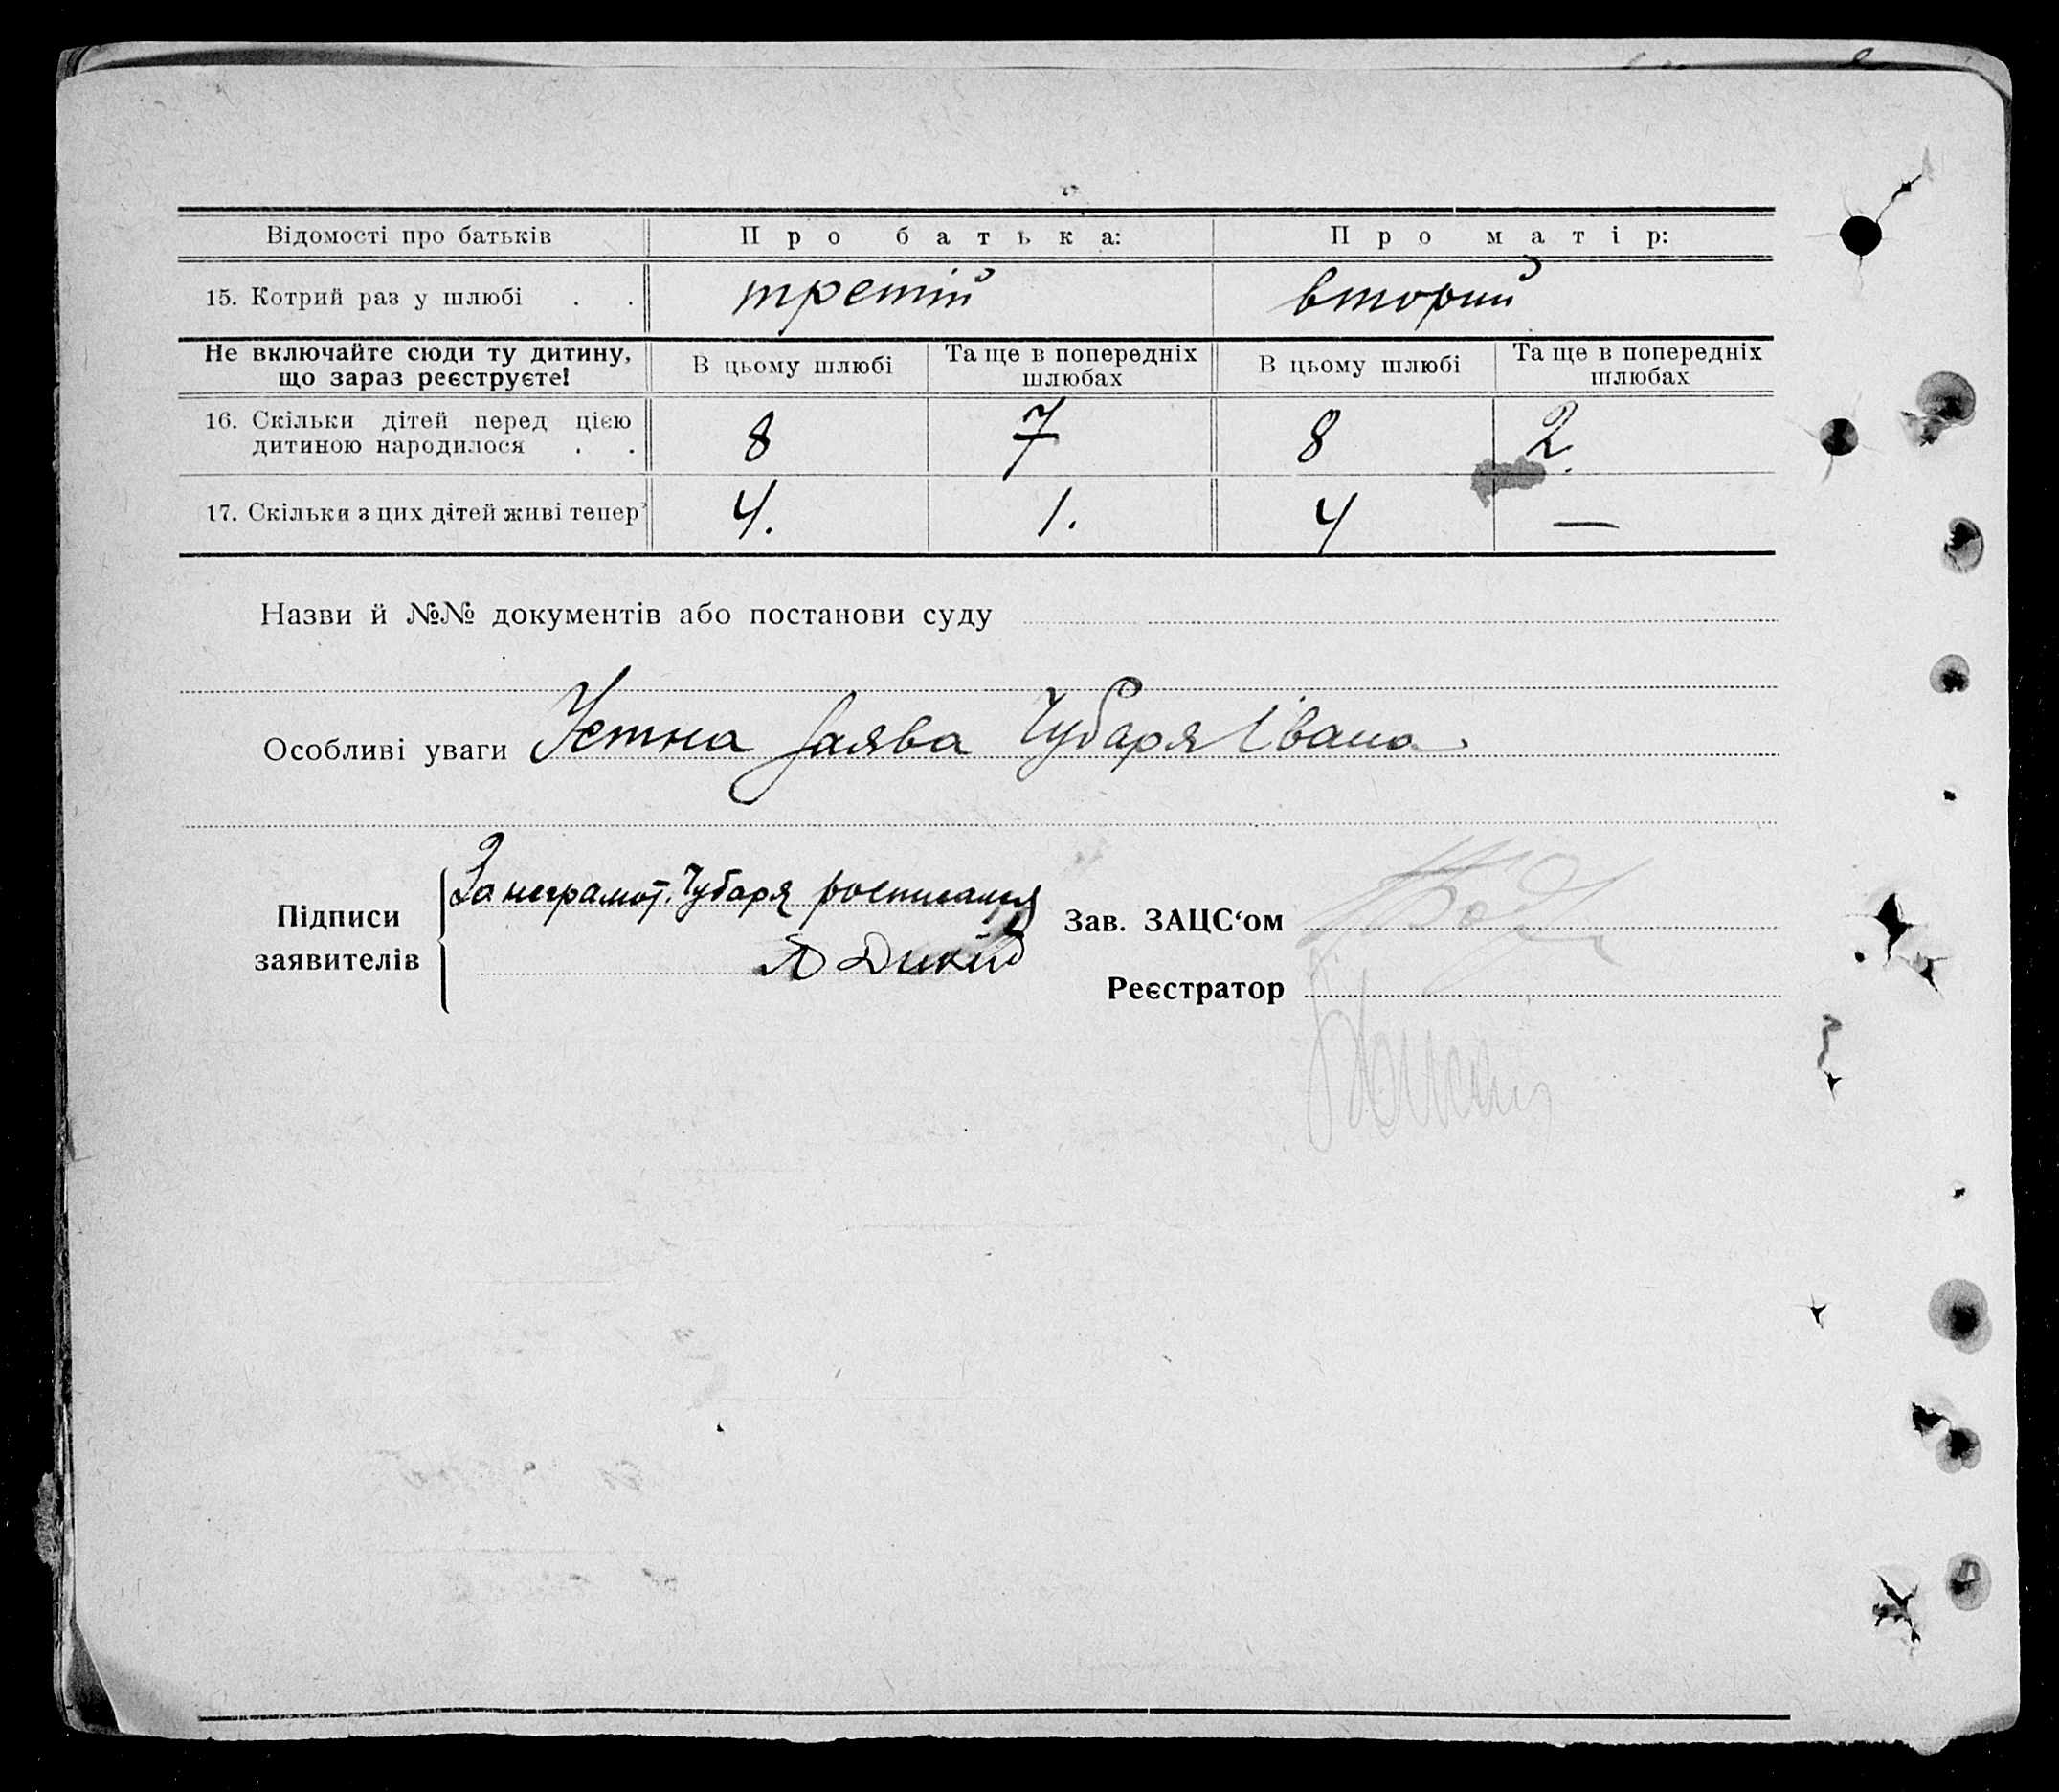 Відомості про батьків Про батька: Про матір:
15. Котрий раз у шлюбі . . третій вторий
Не включайте сюди ту дитину, що зараз реєструєте! В цьому шлюбі Та ще в попередніх шлюбах В цьому шлюбі Та ще в попередніх шлюбах
16. Скільки дітей перед цією
дитиною народилося . . 8 7 8 2.
17. Скільки з цих дітей живі тепер? 4. 1. 4 —
Назви й №№ документів або постанови суду
Особливі уваги Устна заява Чубаря Івана
Підписи заявителів
За неграмот. Чубаря росписался
Дикий
Зав. ЗАЦС‘ом
Реєстратор